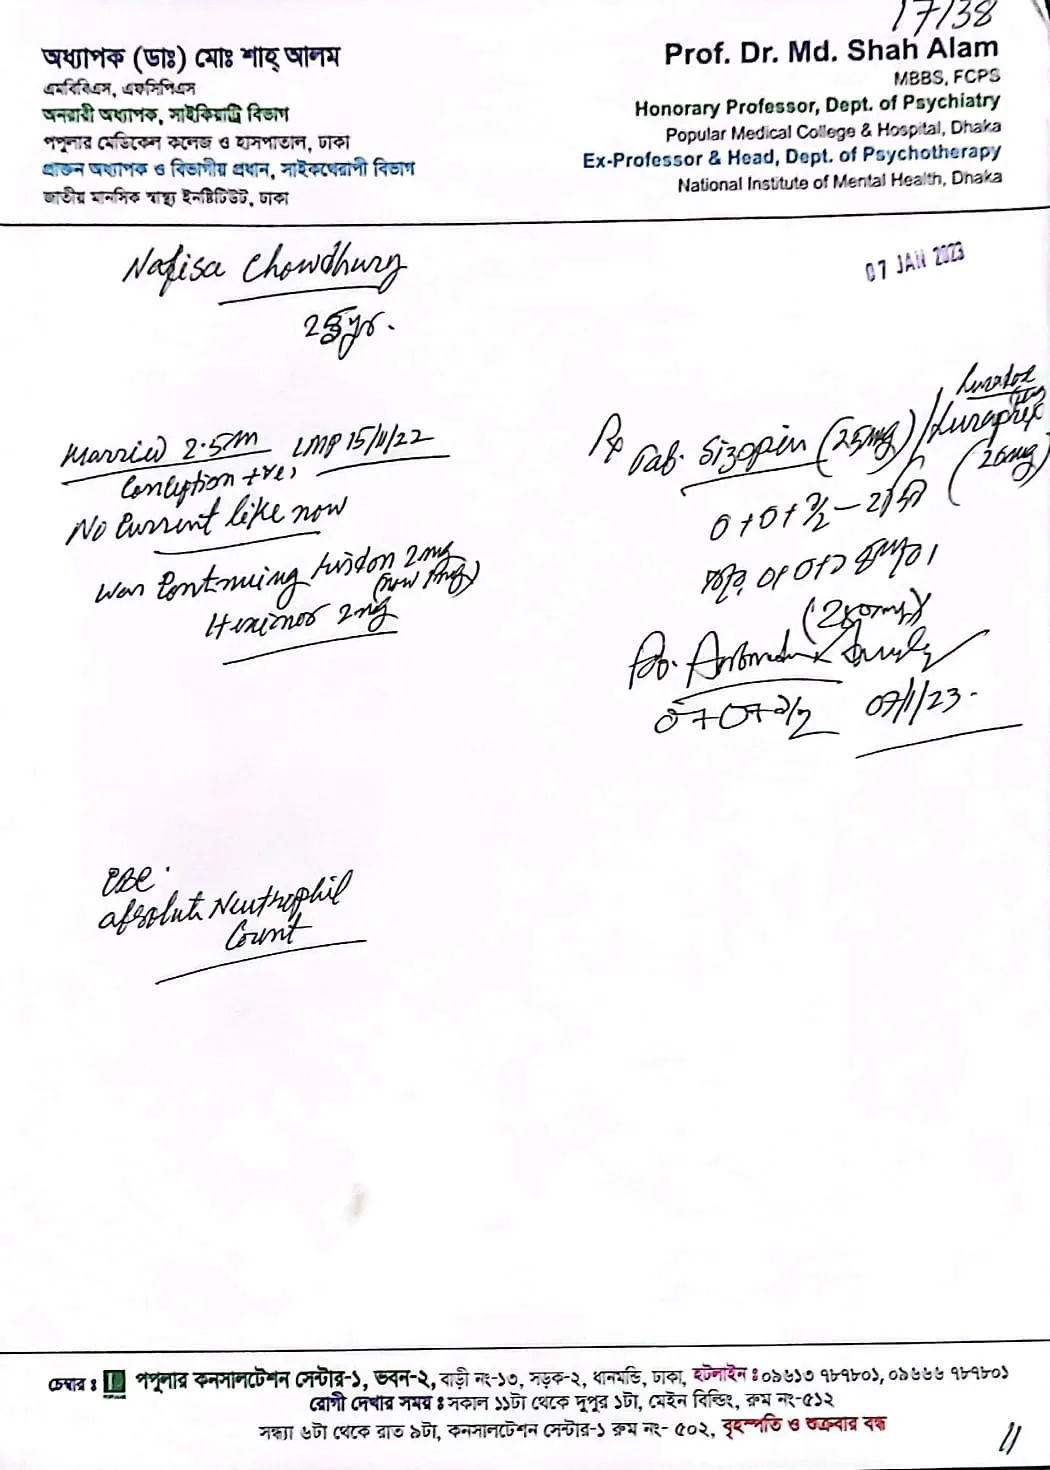 17/38
অধ্যাপক (ডাঃ) মোঃ শাহ্ আলম
এমবিবিএস, এফসিপিএস
অনরারী অধ্যাপক, সাইকিয়াট্রি বিভাগ
পপুলার মেডিকেল কলেজ ও হাসপাতাল, ঢাকা
প্রাক্তন অধ্যাপক ও বিভাগীয় প্রধান, সাইকথেরাপী বিভাগ
জাতীয় মানসিক স্বাস্থ্য ইনষ্টিটিউট, ঢাকা
Prof. Dr. Md. Shah Alam
MBBS, FCPS
Honorary Professor, Dept. of Psychiatry
Popular Medical College & Hospital, Dhaka
Ex-Professor & Head, Dept. of Psychotherapy
National Institute of Mental Health, Dhaka
Nafisa Chowdhury
07 JAN 2023
Married 2.5m LMP 15/11/22
Conception +ve,
No Current like now
Was Continuing 2mg
(now 1mg)
Hexinor 2mg
CBC
absolute Neutrophil
Count
Tab. Sizopin (25mg) /
(20mg)
0+0+
0+0+
07/1/23
চেম্বার ঃ পপুলার কনসালটেশন সেন্টার-১, ভবন-২, বাড়ী নং-১৩, সড়ক-২, ধানমন্ডি, ঢাকা, হটলাইন ঃ ০৯৬১৩ ৭৮৭৮০১, ০৯৬৬৬ ৭৮৭৮০১
রোগী দেখার সময় ঃ সকাল ১১টা থেকে দুপুর ১টা, মেইন বিল্ডিং, রুম নং-৫১২
সন্ধ্যা ৬টা থেকে রাত ৯টা, কনসালটেশন সেন্টার-১ রুম নং- ৫০২, বৃহস্পতি ও শুক্রবার বন্ধ